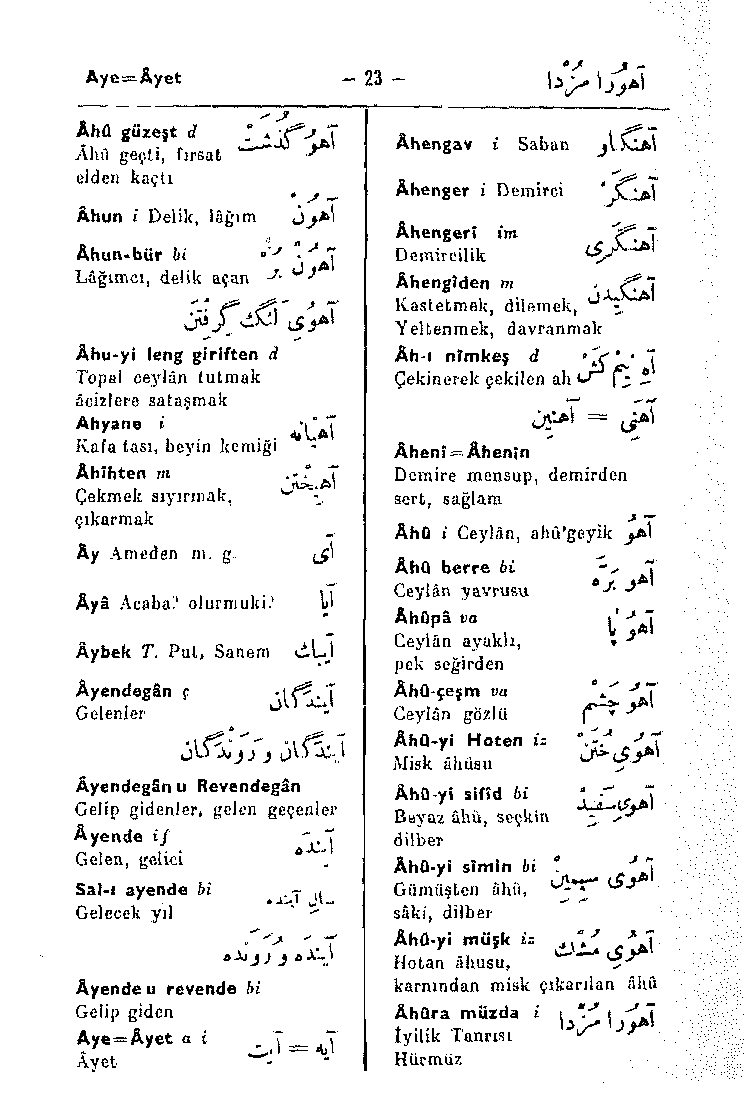 Aye=Âyet – 23 – آهورا مزدا
Âhû güzeşt d آهو گذشت
Âhû geçti, fırsat
elden kaçtı
Âhun i Delik, lâğım آهون
Âhun-bür bi آهون بر
Lâğımcı, delik açan
آهوی لنگ گرفتن
Âhu-yi leng giriften d
Topal ceylân tutmak
âcizlere sataşmak
Ahyane i آهیانه
Kafa tası, beyin kemiği
Âhîhten m آهیختن
Çekmek sıyırmak,
çıkarmak
Ây Ameden m. g. آی
Âyâ Acaba? olurmuki? آیا
Âybek T. Put, Sanem آیبك
Âyendegân ç آیندگان
Gelenler
آیندگان و روندگان
Âyendegân u Revendegân
Gelip gidenler, gelen geçenler
Âyende if آینده
Gelen, gelici
Sal-ı ayende bi سال آینده
Gelecek yıl
آینده و رونده
Âyende u revende bi
Gelip giden
Aye=Âyet a i آیه = آیت
Âyet
Âhengav i Saban آهنگاو
Âhenger i Demirci آهنگر
Âhengerî im آهنگری
Demircilik
Âhengîden m آهنگیدن
Kastetmek, dilemek,
Yeltenmek, davranmak
Âh-ı nîmkeş d آه نیم کش
Çekinerek çekilen ah
آهنی = آهنین
Âhenî=Âhenîn
Demire mensup, demirden
sert, sağlam
Âhû i Ceylân, ahû'geyik آهو
Âhû berre bi آهو بره
Ceylân yavrusu
Âhûpâ va آهو پا
Ceylân ayaklı,
pek seğirden
Âhû-çeşm va آهو چشم
Ceylân gözlü
Âhû-yi Hoten iz آهوی ختن
Misk âhûsu
Âhû-yi sifîd bi آهوی سفید
Beyaz âhû, seçkin
dilber
Âhû-yi sîmîn bi آهوی سیمین
Gümüşten âhû,
sâki, dilber
Âhû-yi müşk iz آهوی مشك
Hotan âhusu,
karnından misk çıkarılan âhû
Âhûra müzda i آهورا مزدا
İyilik Tanrısı
Hürmüz